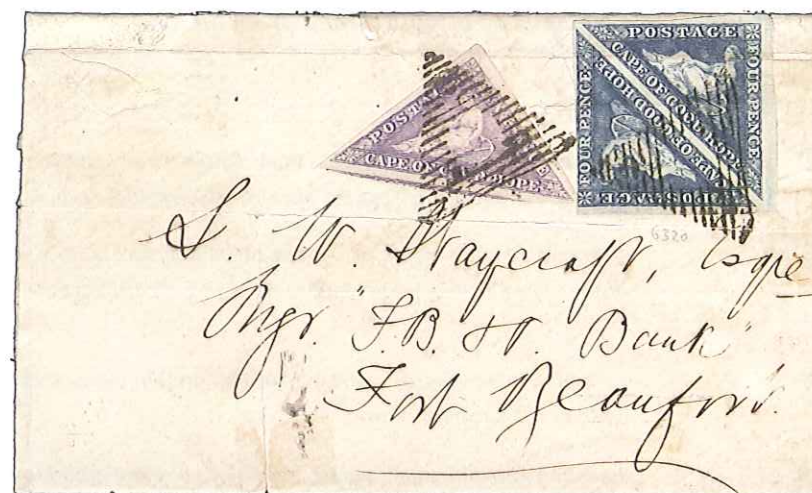 POSTAGE
CAPE OF GOOD HOPE
POSTAGE
FOUR PENCE
CAPE OF GOOD HOPE
FOUR PENCE
CAPE OF GOOD HOPE
POSTAGE
6320
S. W. Haycraft, Esqre
Mgr. "F.B. & Bank"
Fort Beaufort.